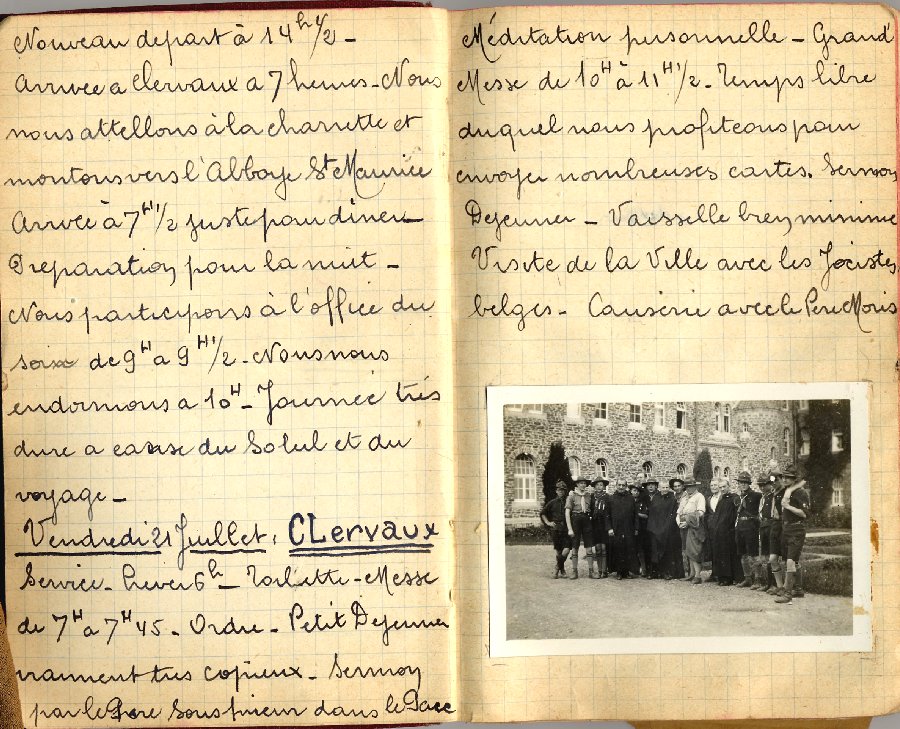 Nouveau depart à 14h1/2 -
Arrivée a Clervaux a 7 heures - Nous
nous attellons à la charrette et
montons vers l'Abbaye St Maurice
Arrivée à 7H1/2 juste pour diner -
Preparation pour la nuit -
Nous participons à l'office du
soir de 9H a 9H1/2 - Nous nous
endormons a 10H - Journée très
dure a cause du Soleil et du
voyage -
Vendredi 21 Juillet, CLervaux
Service - Lever 6h - Toilette - Messe
de 7H a 7H45 - Ordre - Petit Dejeuner
vraiment tres copieux - Sermon
par le Pere Sous prieur dans le Parc
Méditation personnelle - Grand'
Messe de 10H à 11H1/2 - Temps libre
duquel nous profiteons pour
envoyer nombreuses cartes. Sermon
Dejeuner - Vaisselle bien minime
Visite de la Ville avec les Jocistes
belges - Causerie avec le Pere Moris